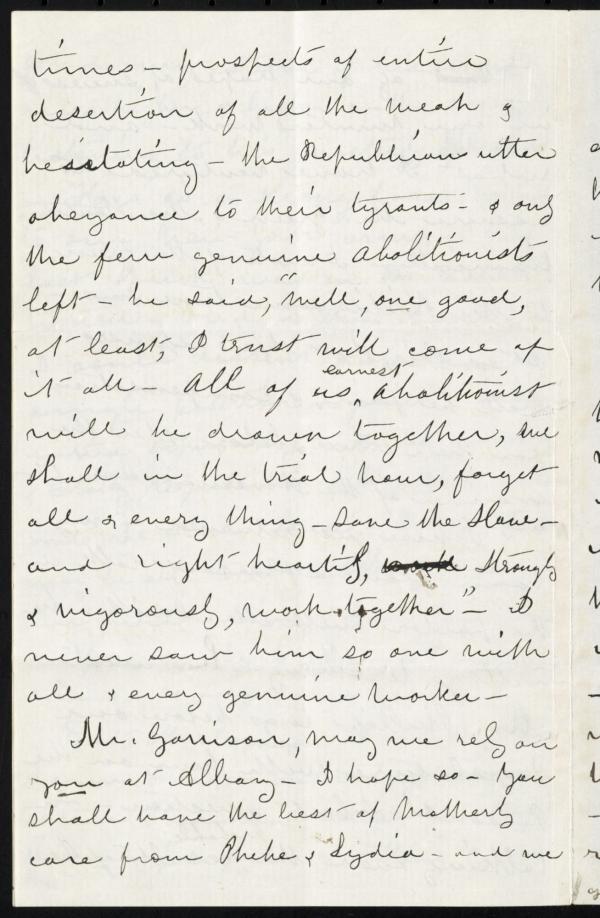 times – prospects of entire
desertion of all the weak &
hesitating – the Republican utter
abeyance to their tyrants – & only
the few genuine abolitionists
left – he said, "well, one good,
at least, I trust will come of
it all – All of us, earnest abolitionist
will be drawn together, we
shall in the trial hour, forget
all & every thing – save the slave –
and right heartily, strongly
& vigorously, work together" – I
never saw him so one with
all & every genuine worker –
Mr. Garrison, may we rely on
you at Albany – I hope so – You
shall have the best of Motherly
care from Phebe & Lydia – and we